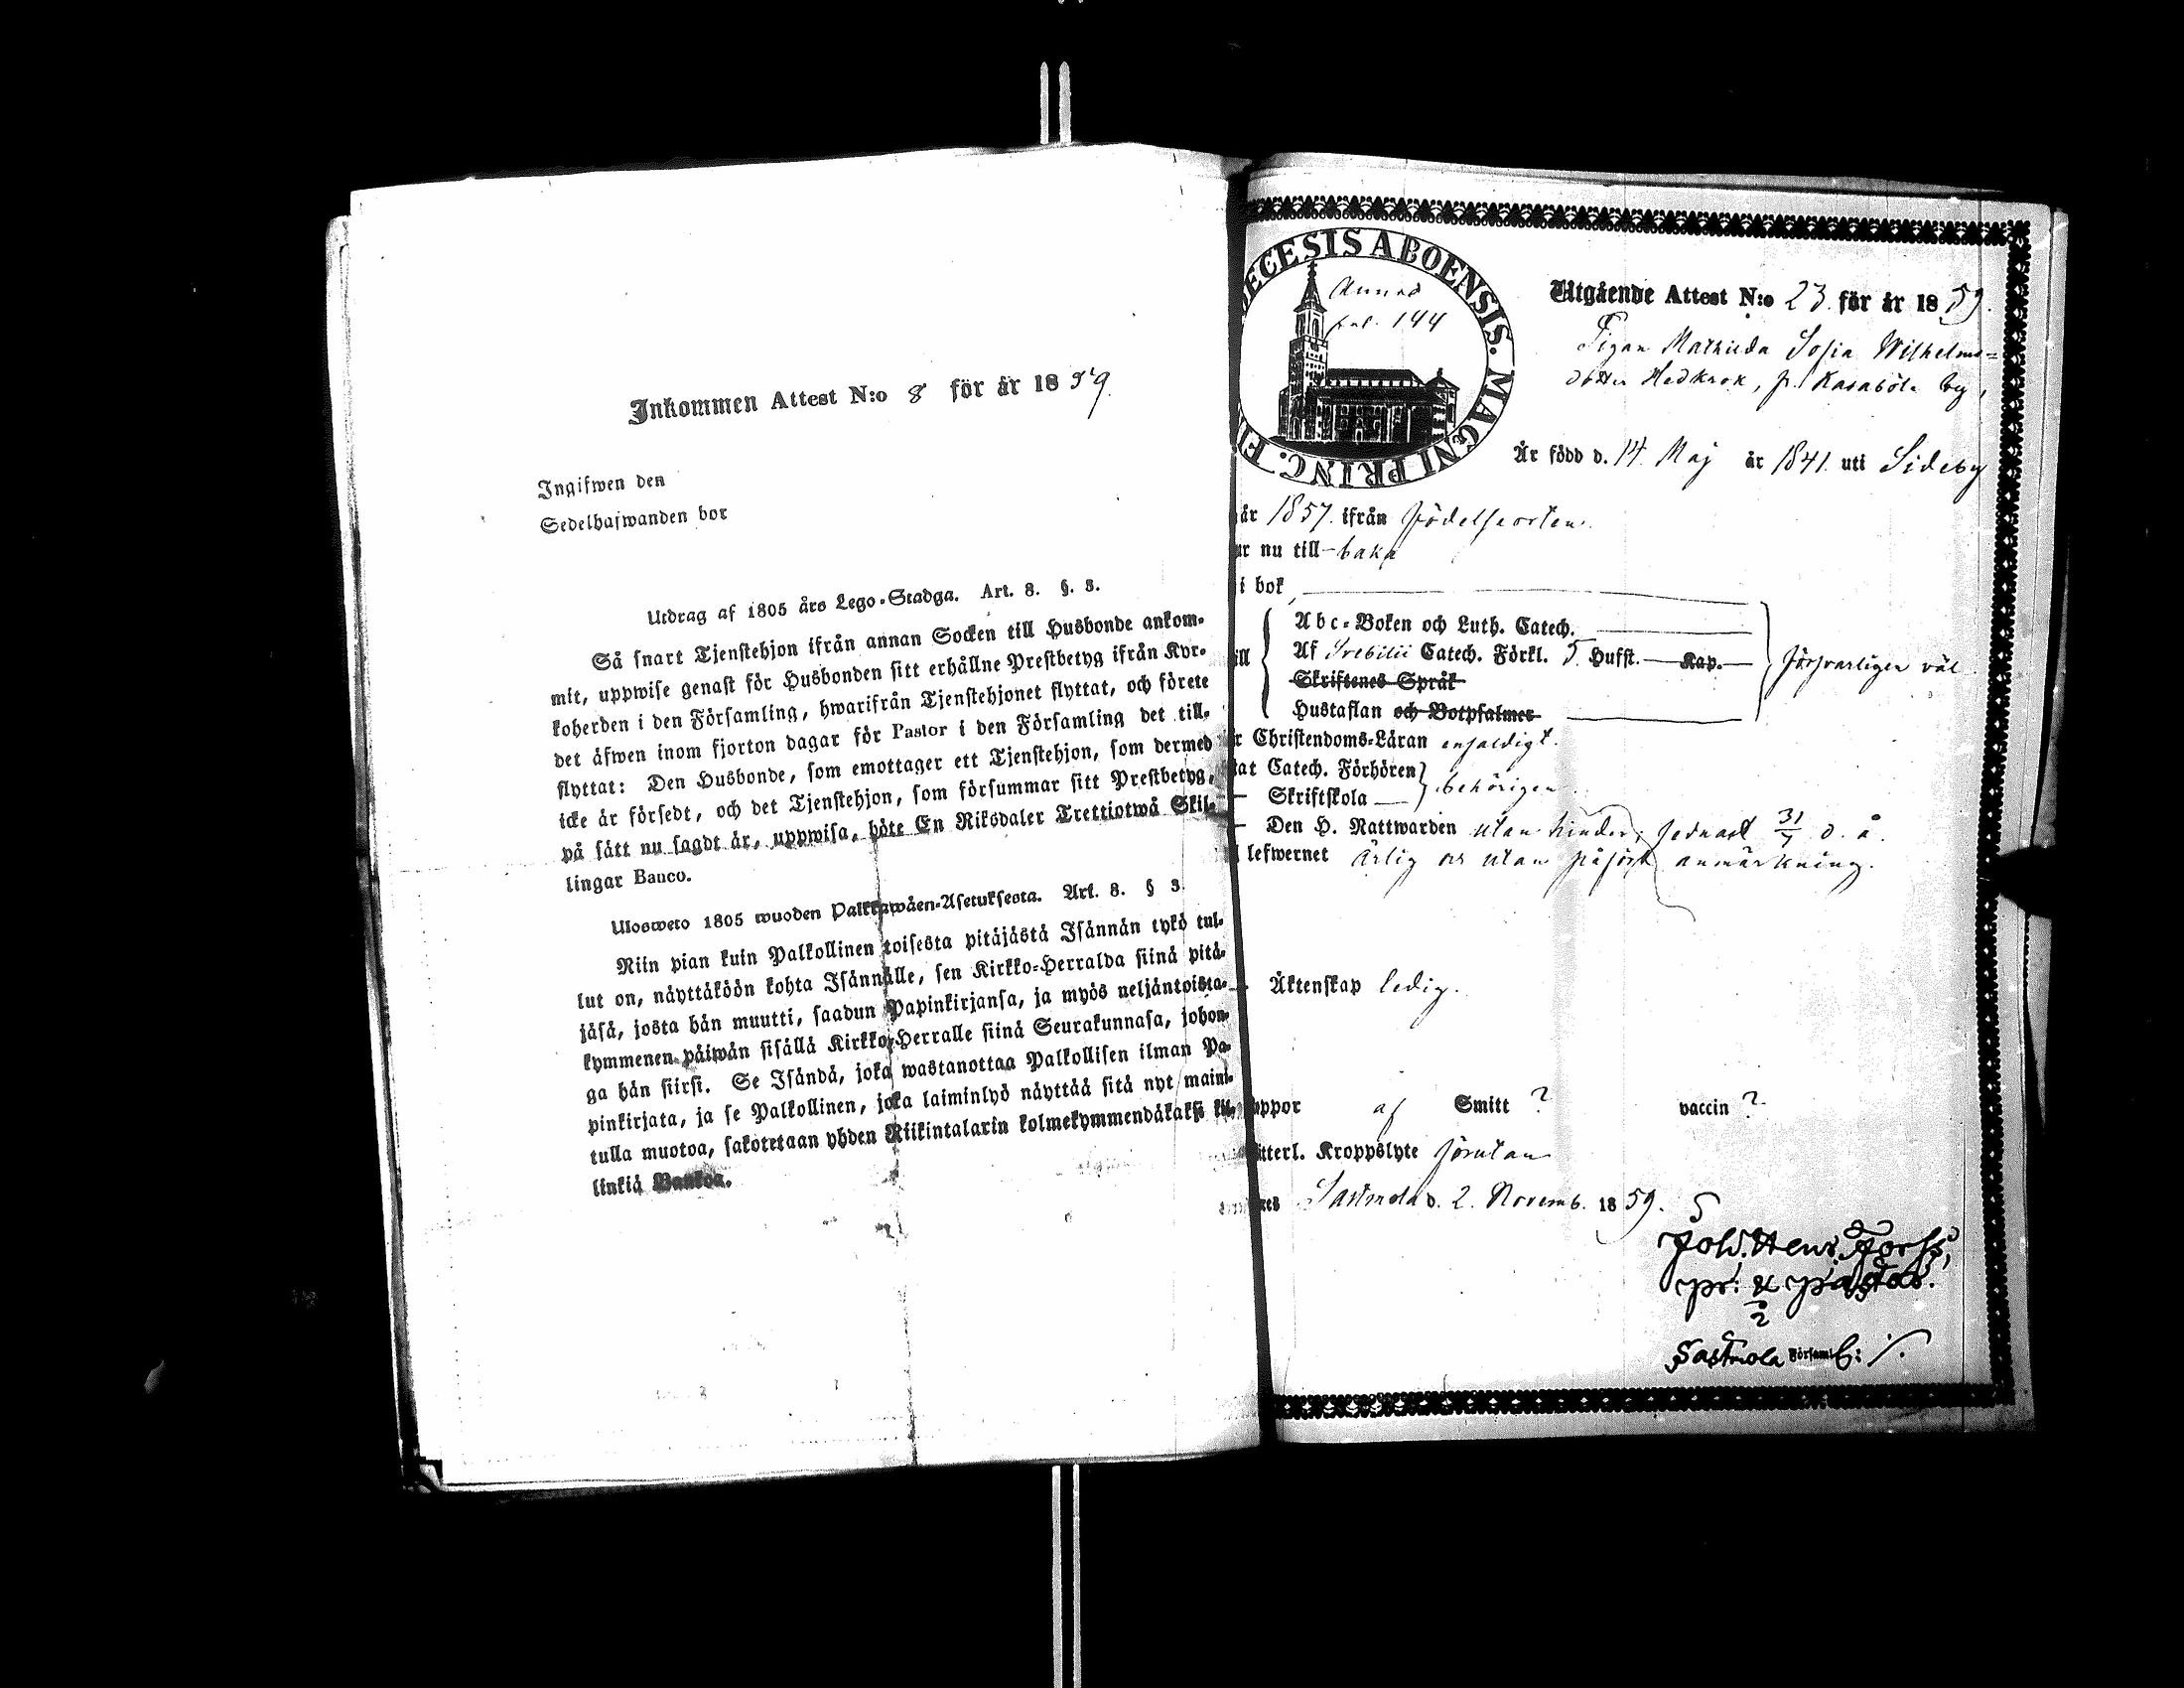 Inkommen Attest N:o 8 för år 1859.
Ingifwen den
Sedelhafwanden bor
Utdrag af 1805 års Lego-Stadga. Art. 8. §. 3.
Så snart Tjenstehjon ifrån annan Socken till Husbonde ankom-
mit, uppwise genast för Husbonden sitt erhållne Prestbetyg ifrån Kyr-
koherden i den Församling, hwarifrån Tjenstehjonet flyttat, och förete
det äfwen inom fjorton dagar för Pastor i den Församling det till-
flyttat: Den Husbonde, som emottager ett Tjenstehjon, som dermed
icke är försedt, och det Tjenstehjon, som försummar sitt Prestbetyg,
på sätt nu sagdt är, uppwisa, böte En Riksdaler Trettiotwå Skil-
lingar Banco.
Ulosweto 1805 wuoden Palkkawäen-Asetuksesta. Art. 8. § 3.
Niin pian kuin Palkollinen toisesta pitäjästä Isännän tykö tul-
lut on, näyttäköön kohta Isännälle, sen Kirkko-Herralda siinä pitä-
jäsä, josta hän muutti, saadun Papinkirjansa, ja myös neljäntoista-
kymmenen päiwän sisällä Kirkko-Herralle siinä Seurakunnasa, johon-
ga hän siirsi. Se Isändä, joka wastanottaa Palkollisen ilman Pa-
pinkirjata, ja se Palkollinen, joka laiminlyö näyttää sitä nyt maini-
tulla muotoa, sakotetaan yhden Riikintalarin kolmekymmendäkaksi kil-
linkiä Bankoa.
ECESIS ABOENSIS. MAGNI PRINC. FI
fol. 144
Utgående Attest N:o 23 för år 1859.
Pigan Mathilda Sofia Wilhelms=
dotter Hedkrok, fr. Kasaböle by,
Är född d. 14 Maj år 1841. uti Sideby
år 1857. ifrån födelseorten.
ur nu till-baka
i bok
ill Abc-Boken och Luth. Catech.
Af Svebilii Catech. Förkl. 5 Hufst. Kap. försvarligen väl
Skriftenes Språk
Hustaflan och Botpsalmer
r Christendoms-Läran enfaldigt.
tat Catech. Förhören
Skriftskola behörigen.
Den H. Nattwarden utan hinder, sednast 31/7 d. å.
lefwernet ärlig och utan påförd anmärkning.
Äktenskap ledig.
oppor af Smitt ? vaccin ?
itterl. Kroppslyte förutan
Sastmola d. 2. Novemb. 1859.
Joh. Henr. Forss,
pr. & pastor.
Sastmola Församl.